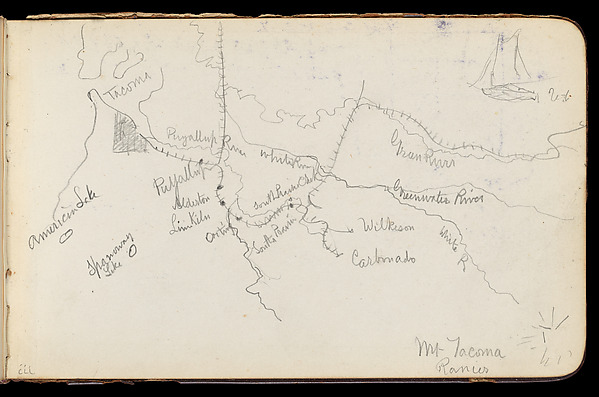 Tacoma
Puyallup River
White River
Green River
Puyallup
Alderton
Lime Kiln
Orting
South Prairie Creek
South Prairie
Greenwater River
White R
Wilkeson
Carbonado
American Lake
Spanoway
Lake
Mt Tacoma
Ranier